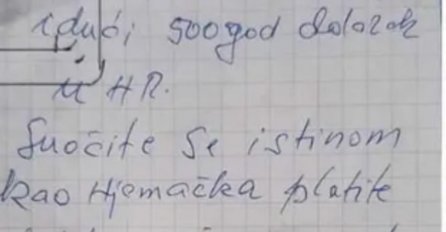 idući 500god dolazak
u HR.
Suočite se istinom
kao Njemačka platite